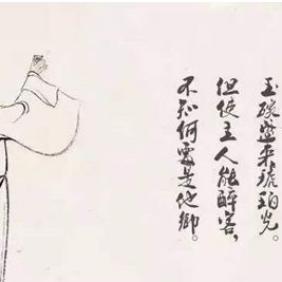 玉碗盛来琥珀光。
但使主人能醉客，
不知何處是他鄉。